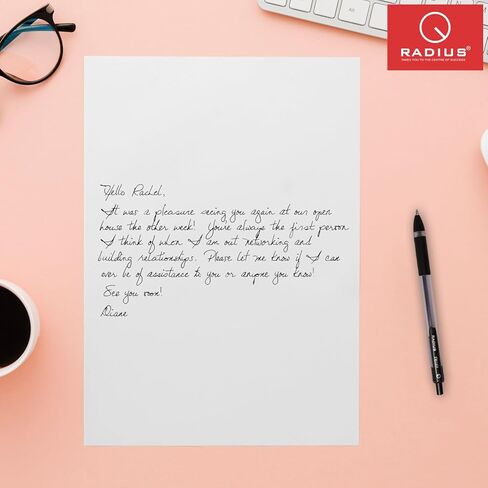 RADIUS®
TAKES YOU TO THE CENTRE OF SUCCESS
Hello Rachel,
It was a pleasure seeing you again at our open
house the other week! You're always the first person
I think of when I am out networking and
building relationships. Please let me know if I can
ever be of assistance to you or anyone you know!
See you soon!
Diane